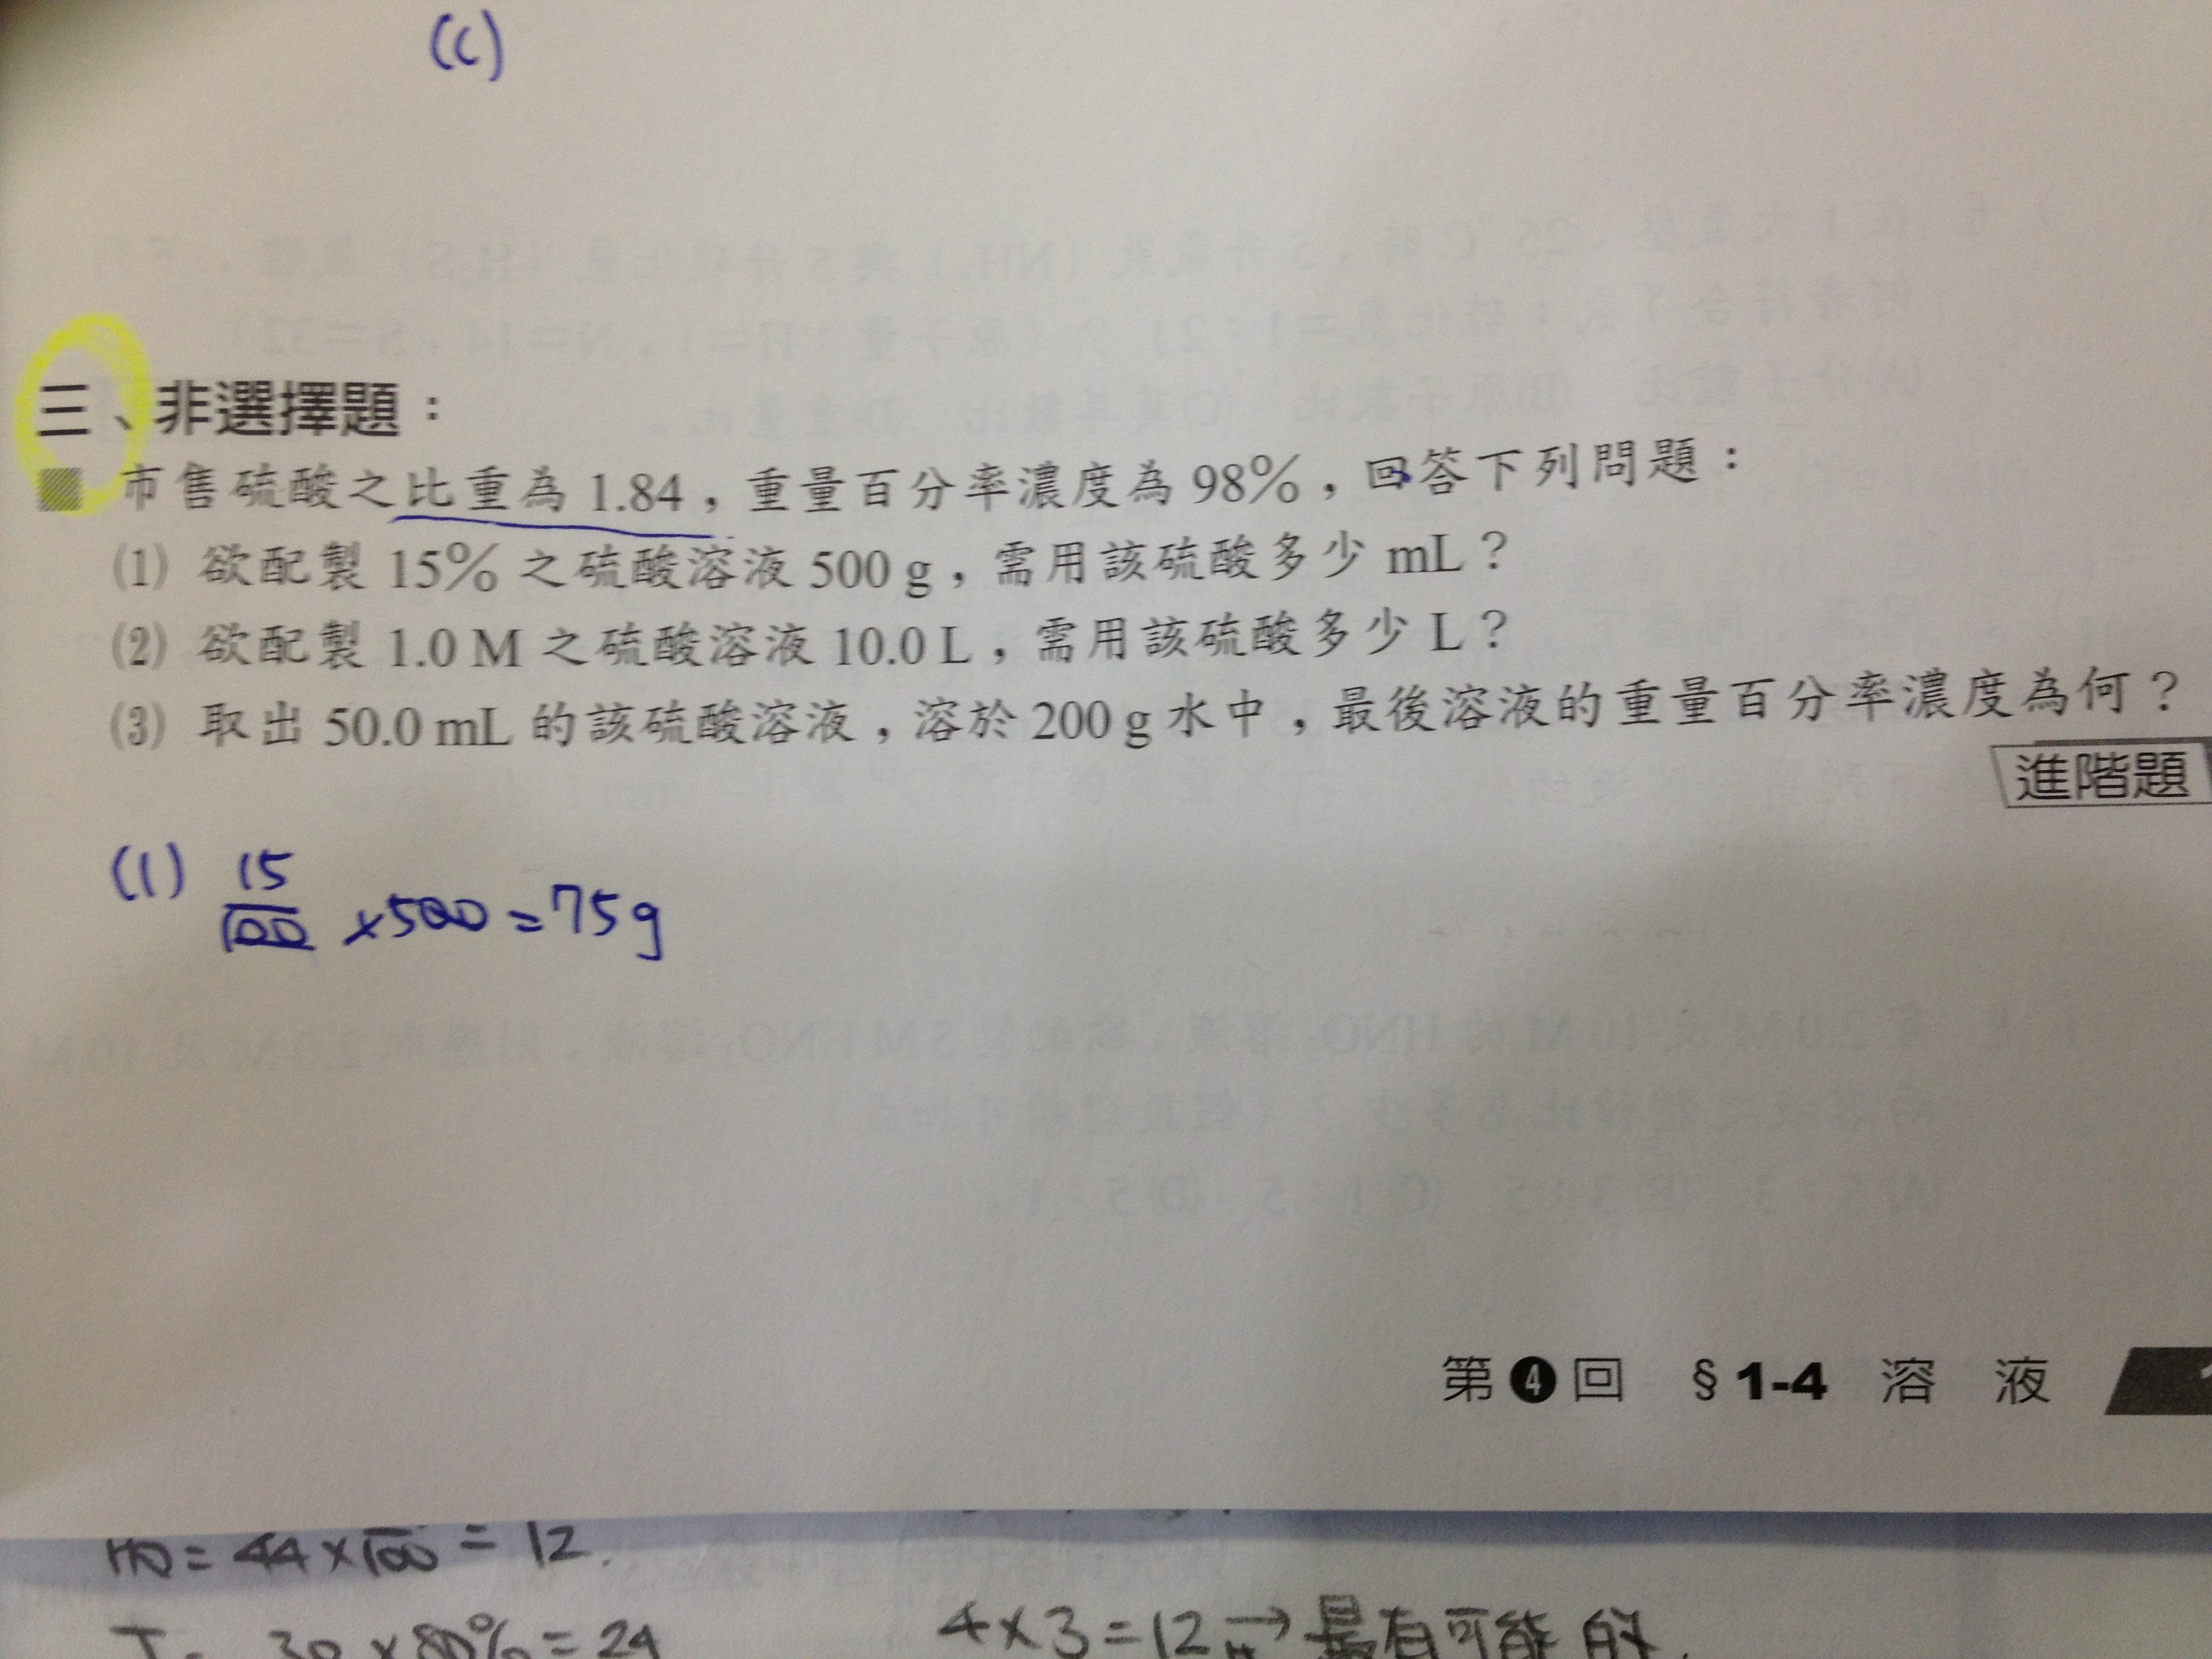 (C)
三、非選擇題：
市售硫酸之比重為 1.84，重量百分率濃度為 98%，回答下列問題：
(1) 欲配製 15% 之硫酸溶液 500 g，需用該硫酸多少 mL？
(2) 欲配製 1.0 M 之硫酸溶液 10.0 L，需用該硫酸多少 L？
(3) 取出 50.0 mL 的該硫酸溶液，溶於 200 g 水中，最後溶液的重量百分率濃度為何？
進階題
(1) 15/100 ×500 = 75g
第 4 回 §1-4 溶 液
= 44 × = 12.
30 × 80% = 24
4×3=12 → 最有可能的